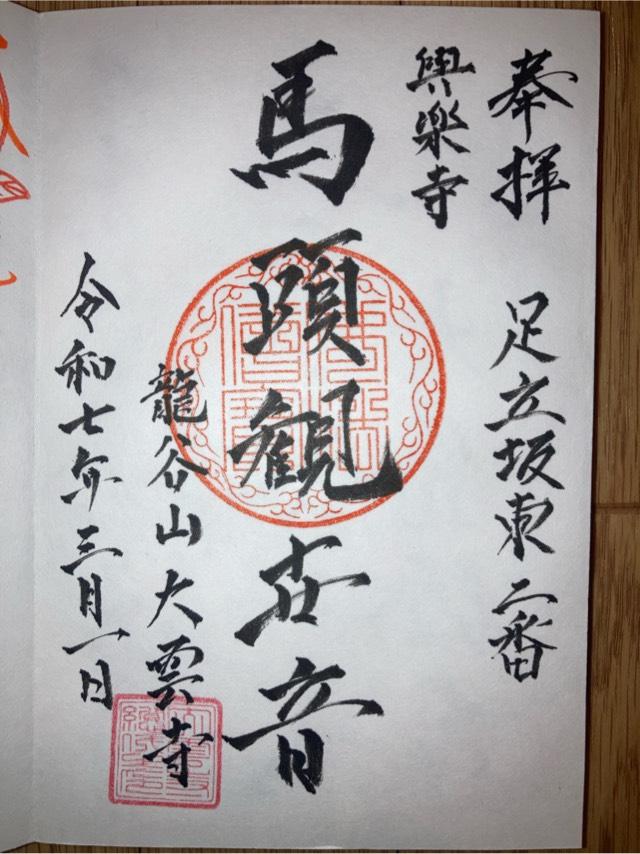 奉拝　足立坂東二番
興楽寺
馬頭観世音
龍谷山大雲寺
令和七年三月一日